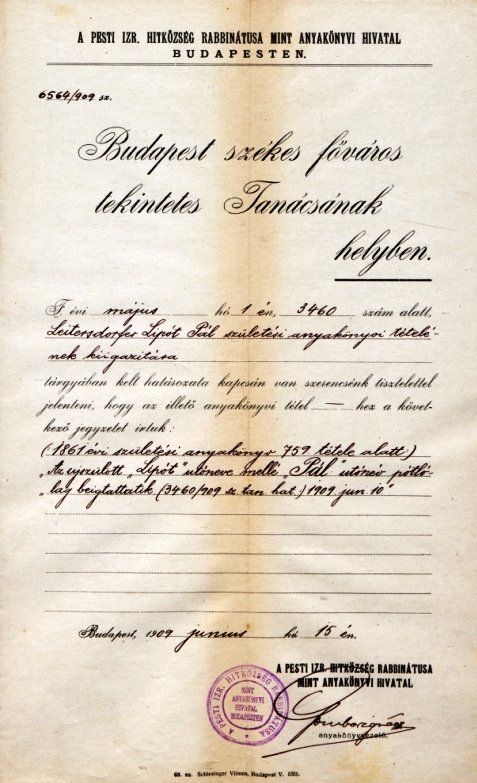 A PESTI IZR. HITKÖZSÉG RABBINÁTUSA MINT ANYAKÖNYVI HIVATAL
BUDAPESTEN.
6564/909 sz.
Budapest székes főváros
tekintetes Tanácsának
helyben.
F évi május hó 1 én, 3460 szám alatt,
Leitersdorfer Lipót Pál születési anyakönyvi tételé-
nek kiigazitása
tárgyában kelt határozata kapcsán van szerencsénk tisztelettel
jelenteni, hogy az illető anyakönyvi tétel — hez a követ-
kező jegyzetet irtuk:
(1861 évi születési anyakönyv 759 tétele alatt:)
„Az ujszülött „Lipót" utóneve mellé „Pál" utónév pótló-
„lag beigtattatik (3460/909 sz tan. hat.) 1909 jun. 10"
Budapest, 1909 junius hó 15 én.
A PESTI IZR. HITKÖZSÉG RABBINÁTUSA
MINT ANYAKÖNYVI HIVATAL
anyakönyvvezető.
A PESTI IZR. HITKÖZSÉG RABBINÁTUSA
MINT
ANYAKÖNYVI
HIVATAL
BUDAPESTEN
60. sz. Schlesinger Vilmos, Budapest V.